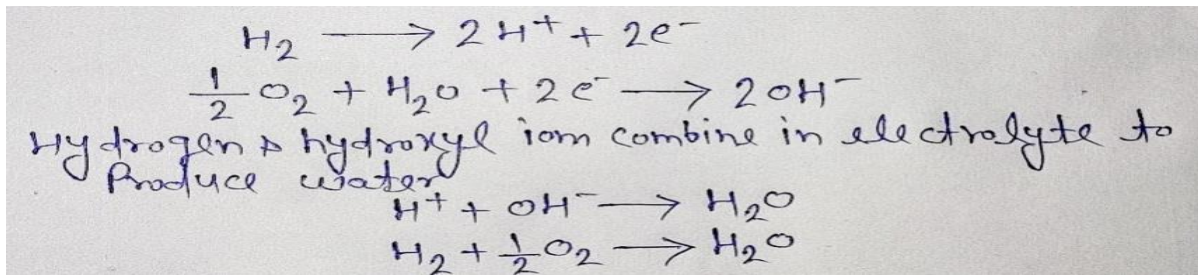 H₂ → 2H⁺ + 2e⁻
1/2 O₂ + H₂O + 2e⁻ → 2OH⁻
Hydrogen & hydroxyl iom combine in electrolyte to
Produce water
H⁺ + OH⁻ → H₂O
H₂ + 1/2 O₂ → H₂O